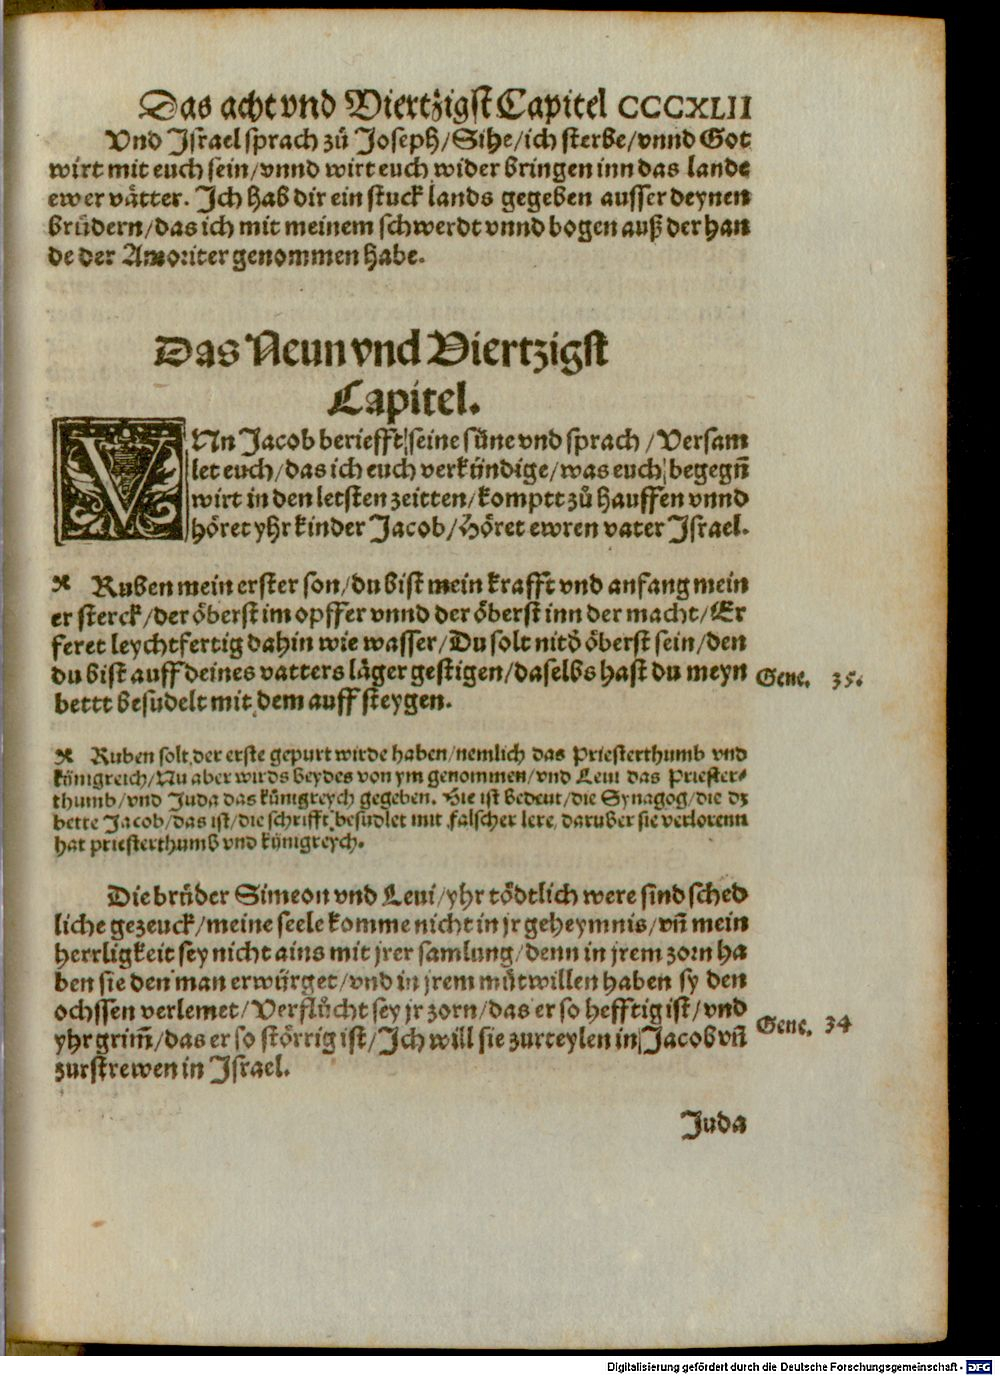 Das acht vnd Viertzigst Capitel CCCXLII
Vnd Jsrael sprach zů Joseph/Sihe/ich sterbe/vnnd Got
wirt mit euch sein/vnnd wirt euch wider bringen inn das lande
ewer vätter. Jch hab dir ein stuck lands gegeben ausser deynen
brüdern/das ich mit meinem schwerdt vnnd bogen auß der han
de der Amoriter genommen habe.
Das Neun vnd Viertzigst
Capitel.
VNn Jacob beriefft seine süne vnd sprach/Versam
let euch/das ich euch verkündige/was euch begegn̄
wirt in den letsten zeitten/komptt zů hauffen vnnd
höret yhr kinder Jacob/Höret ewren vater Jsrael.
Ruben mein erster son/du bist mein krafft vnd anfang mein
er sterck/der öberst im opffer vnnd der öberst inn der macht/Er
feret leychtfertig dahin wie wasser/Du solt nitt öberst sein/den
du bist auff deines vatters läger gestigen/daselbs hast du meyn
bettt besudelt mit dem auff steygen.
Gene. 35.
Ruben solt der erste gepurt wirde haben/nemlich das Priesterthumb vnd
künigreich/Nu aber wirds beydes von ym genommen/vnd Leui das Priester-
thumb/vnd Juda das künigreych gegeben. Hie ist bedeut/die Synagog/die dz
bette Jacob/das ist/die schrifft besudlet mit falscher lere, daruber sie verlorenn
hat priesterthumb vnd künigreych.
Die brüder Simeon vnd Leui/yhr tödtlich were sind sched
liche gezeuck/meine seele komme nicht in jr geheymnis/vn̄ mein
herrligkeit sey nicht ains mit jrer samlung/denn in jrem zorn ha
ben sie den man erwürget/vnd in jrem můtwillen haben sy den
ochssen verlemet/Verflůcht sey jr zorn/das er so hefftig ist/vnd
yhr grim̄/das er so störrig ist/Jch will sie zurteylen in Jacob vn̄
zurstrewen in Jsrael.
Gene. 34
Juda
Digitalisierung gefördert durch die Deutsche Forschungsgemeinschaft - DFG